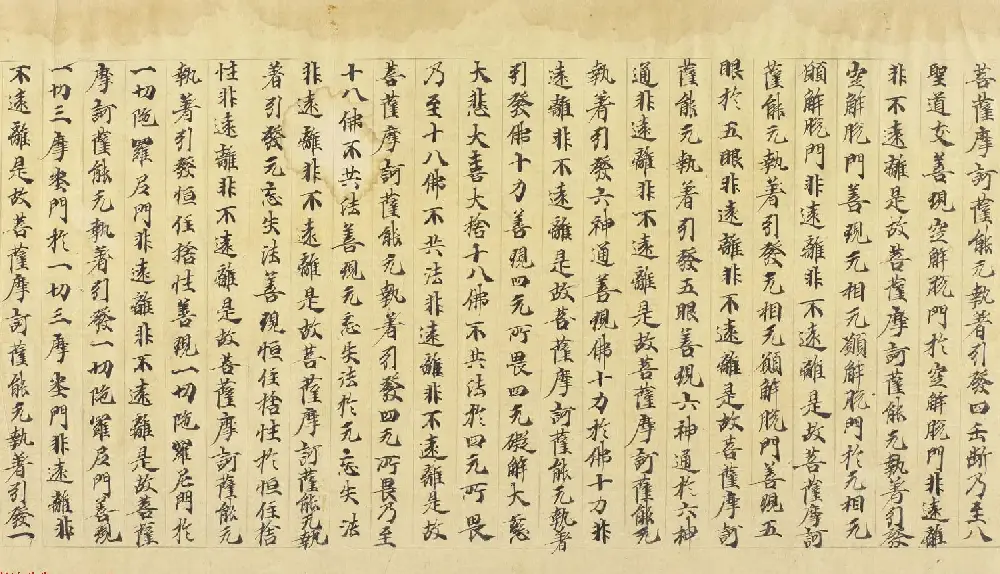 菩薩摩訶薩能无執著引發四正断乃至八
聖道支善現空解脫門於空解脫門非遠離
非不遠離是故菩薩摩訶薩能无執著引發
空解脫門善現无相无願解脫門於无相无
願解脫門非遠離非不遠離是故菩薩摩訶
薩能无執著引發无相无願解脫門善現五
眼於五眼非遠離非不遠離是故菩薩摩訶
薩能无執著引發五眼善現六神通於六神
通非遠離非不遠離是故菩薩摩訶薩能无
執著引發六神通善現佛十力於佛十力非
遠離非不遠離是故菩薩摩訶薩能无執著
引發佛十力善現四无所畏四无礙解大慈
大悲大喜大捨十八佛不共法於四无所畏
乃至十八佛不共法非遠離非不遠離是故
菩薩摩訶薩能无執著引發四无所畏乃至
十八佛不共法善現无忘失法於无忘失法
非遠離非不遠離是故菩薩摩訶薩能无執
著引發无忘失法善現恒住捨性於恒住捨
性非遠離非不遠離是故菩薩摩訶薩能无
執著引發恒住捨性善現一切陁羅尼門於
一切陁羅尼門非遠離非不遠離是故菩薩
摩訶薩能无執著引發一切陁羅尼門善現
一切三摩埊門於一切三摩埊門非遠離非
不遠離是故菩薩摩訶薩能无執著引發一